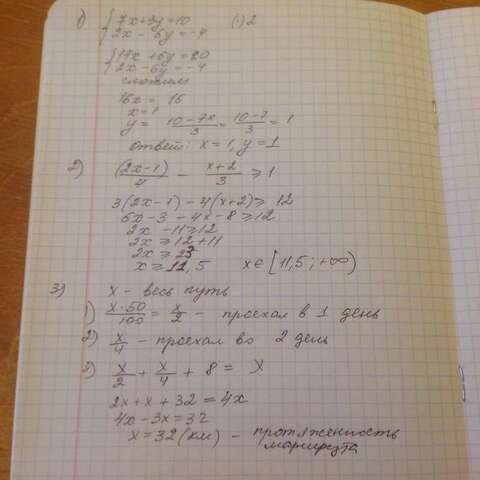 1) { 7x+3y=10 (·)2
2x - 6y = -4
{ 14x + 6y = 20
2x - 6y = -4
сложим
16x = 16
x = 1
y = (10-7x)/3 = (10-7)/3 = 1
Ответ: x = 1, y = 1
2) (2x-1)/4 - (x+2)/3 ⩾ 1
3(2x-1) - 4(x+2) ⩾ 12
6x - 3 - 4x - 8 ⩾ 12
2x - 11 ⩾ 12
2x ⩾ 12 + 11
2x ⩾ 23
x ⩾ 11,5 x ∈ [11,5 ; +∞)
3) x - весь путь
1) (x·50)/100 = x/2 - проехал в 1 день
2) x/4 - проехал во 2 день
3) x/2 + x/4 + 8 = x
2x + x + 32 = 4x
4x - 3x = 32
x = 32 (км) - протяженность
маршрута